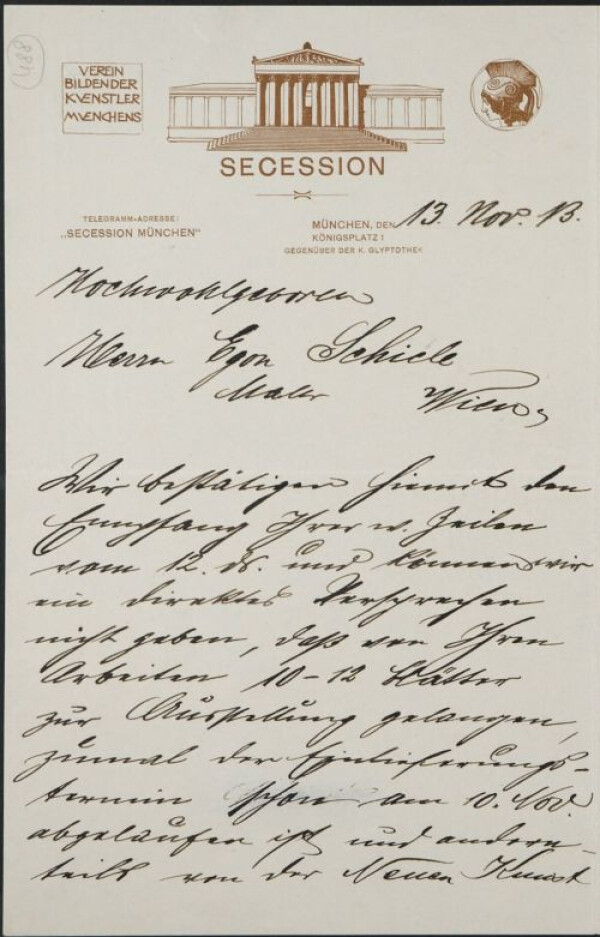 488
VEREIN
BILDENDER
KVENSTLER
MVENCHENS
SECESSION
TELEGRAMM-ADRESSE:
„SECESSION MÜNCHEN"
MÜNCHEN, DEN 13. Nov. 13.
KÖNIGSPLATZ 1
GEGENÜBER DER K. GLYPTOTHEK
Hochwohlgeboren
Herrn Egon Schiele
Maler Wien,
Wir bestätigen hiemit den
Empfang Ihrer w. Zeilen
vom 12. ds. und können wir
ein direktes Versprechen
nicht geben, daß von Ihren
Arbeiten 10-12 Blätter
zur Ausstellung gelangen,
zumal der Einlieferungs-
termin schon am 10. Nov.
abgelaufen ist und andern-
teils von der Neuen Kunst